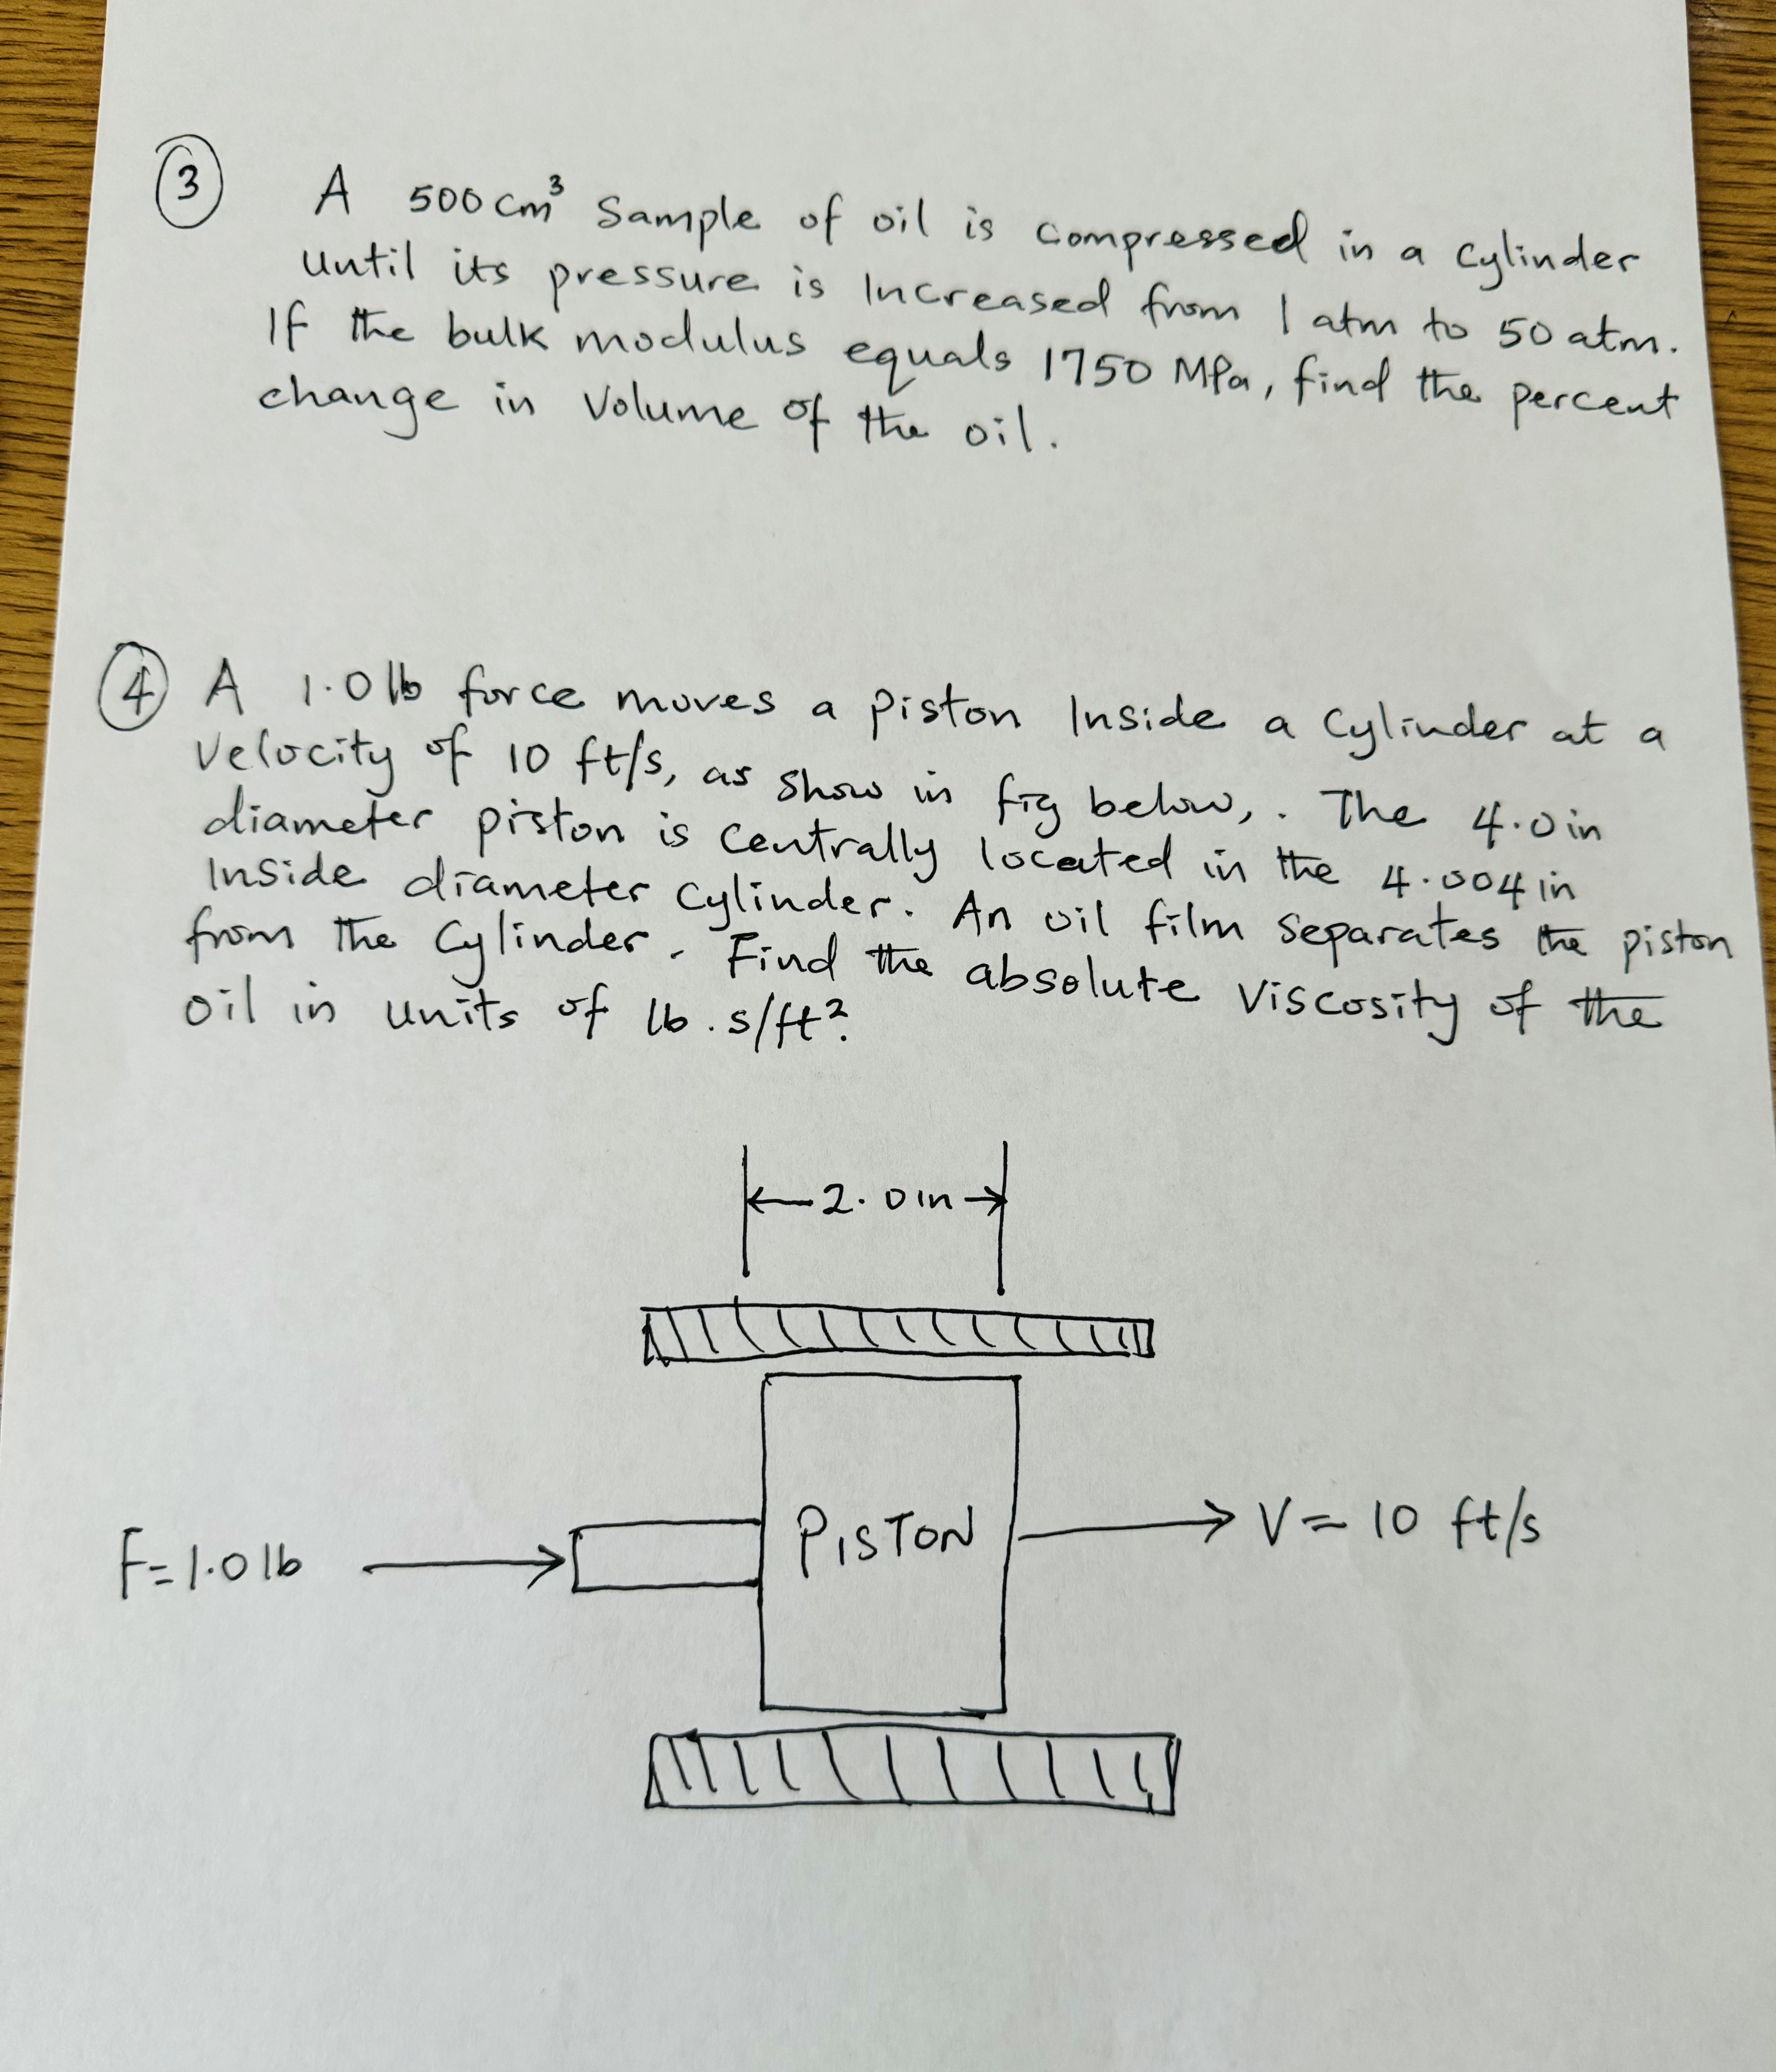 ③ A 500 cm³ Sample of oil is compressed in a cylinder
until its pressure is Increased from 1 atm to 50 atm.
If the bulk modulus equals 1750 MPa, find the percent
change in Volume of the oil.
④ A 1.0 lb force moves a piston Inside a Cylinder at a
Velocity of 10 ft/s, as show in fig below, . The 4.0 in
diameter piston is centrally located in the 4.004 in
Inside diameter cylinder. An oil film separates the piston
from the cylinder. Find the absolute viscosity of the
oil in units of lb.s/ft².
2.0 in
PISTON
F=1.0 lb
V= 10 ft/s